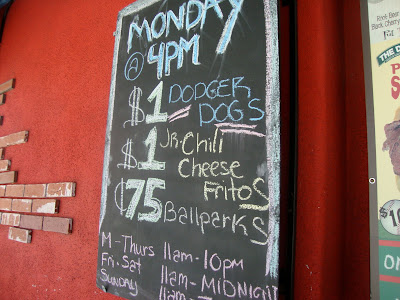 MONDAY
@ 4PM
$1 DODGER
DOG'S
$1 Jr. Chili
Cheese
FRitoS
¢75 BallparKS
M - Thurs 11am - 10pm
Fri - Sat 11am - MIDNIGHT
Sunday 11am -
Root Beer
Black Cherry
THE D
P
S
$10
ON